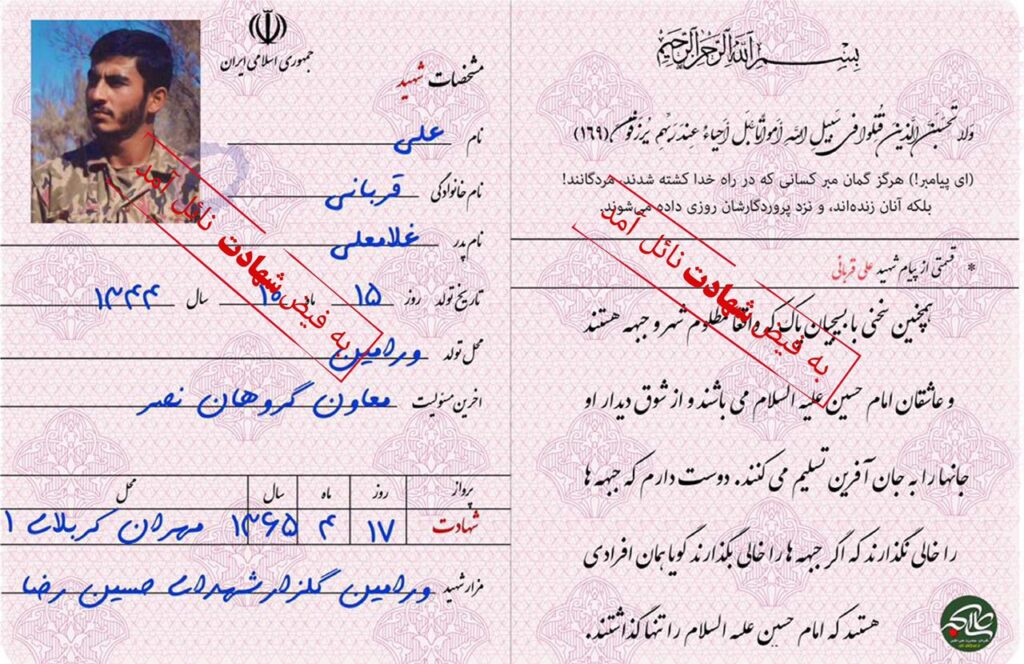 بسم الله الرحمن الرحیم
وَلا تَحْسَبَنَّ الَّذینَ قُتِلُوا فی سَبیلِ اللهِ أَمْواتاً بَلْ أَحْیاءٌ عِنْدَ رَبِّهِمْ یُرْزَقُونَ (١٦٩)
(ای پیامبر!) هرگز گمان مبر کسانی که در راه خدا کشته شدند، مردگانند!
بلکه آنان زنده‌اند، و نزد پروردگارشان روزی داده می‌شوند.
* قسمتی از پیام شهید علی قربانی
همچنین سخنی با بسیجیان پاک که واقعا مظلوم شهر و جبهه هستند
و عاشقان امام حسین علیه السلام می باشند و از شوق دیدار او
جانها را به جان آفرین تسلیم می کنند. دوست دارم که جبهه ها
را خالی نگذارند که اگر جبهه ها را خالی بگذارند گویا همان افرادی
هستند که امام حسین علیه السلام را تنها گذاشتند.
به فیض شهادت نائل آمد
جمهوری اسلامی ایران
مشخصات شهید
نام علی
نام خانوادگی قربانی
نام پدر غلامعلی
تاریخ تولد روز ۱۵ ماه ۱۰ سال ۱۳۴۴
محل تولد ورامین
اخرین مسئولیت معاون گروهان نصر
پرواز روز ماه سال محل
شهادت ۱۷ ۴ ۱۳۶۵ مهران کربلای ۱
مزار شهید ورامین گلزار شهدای حسین رضا
به فیض شهادت نائل آمد